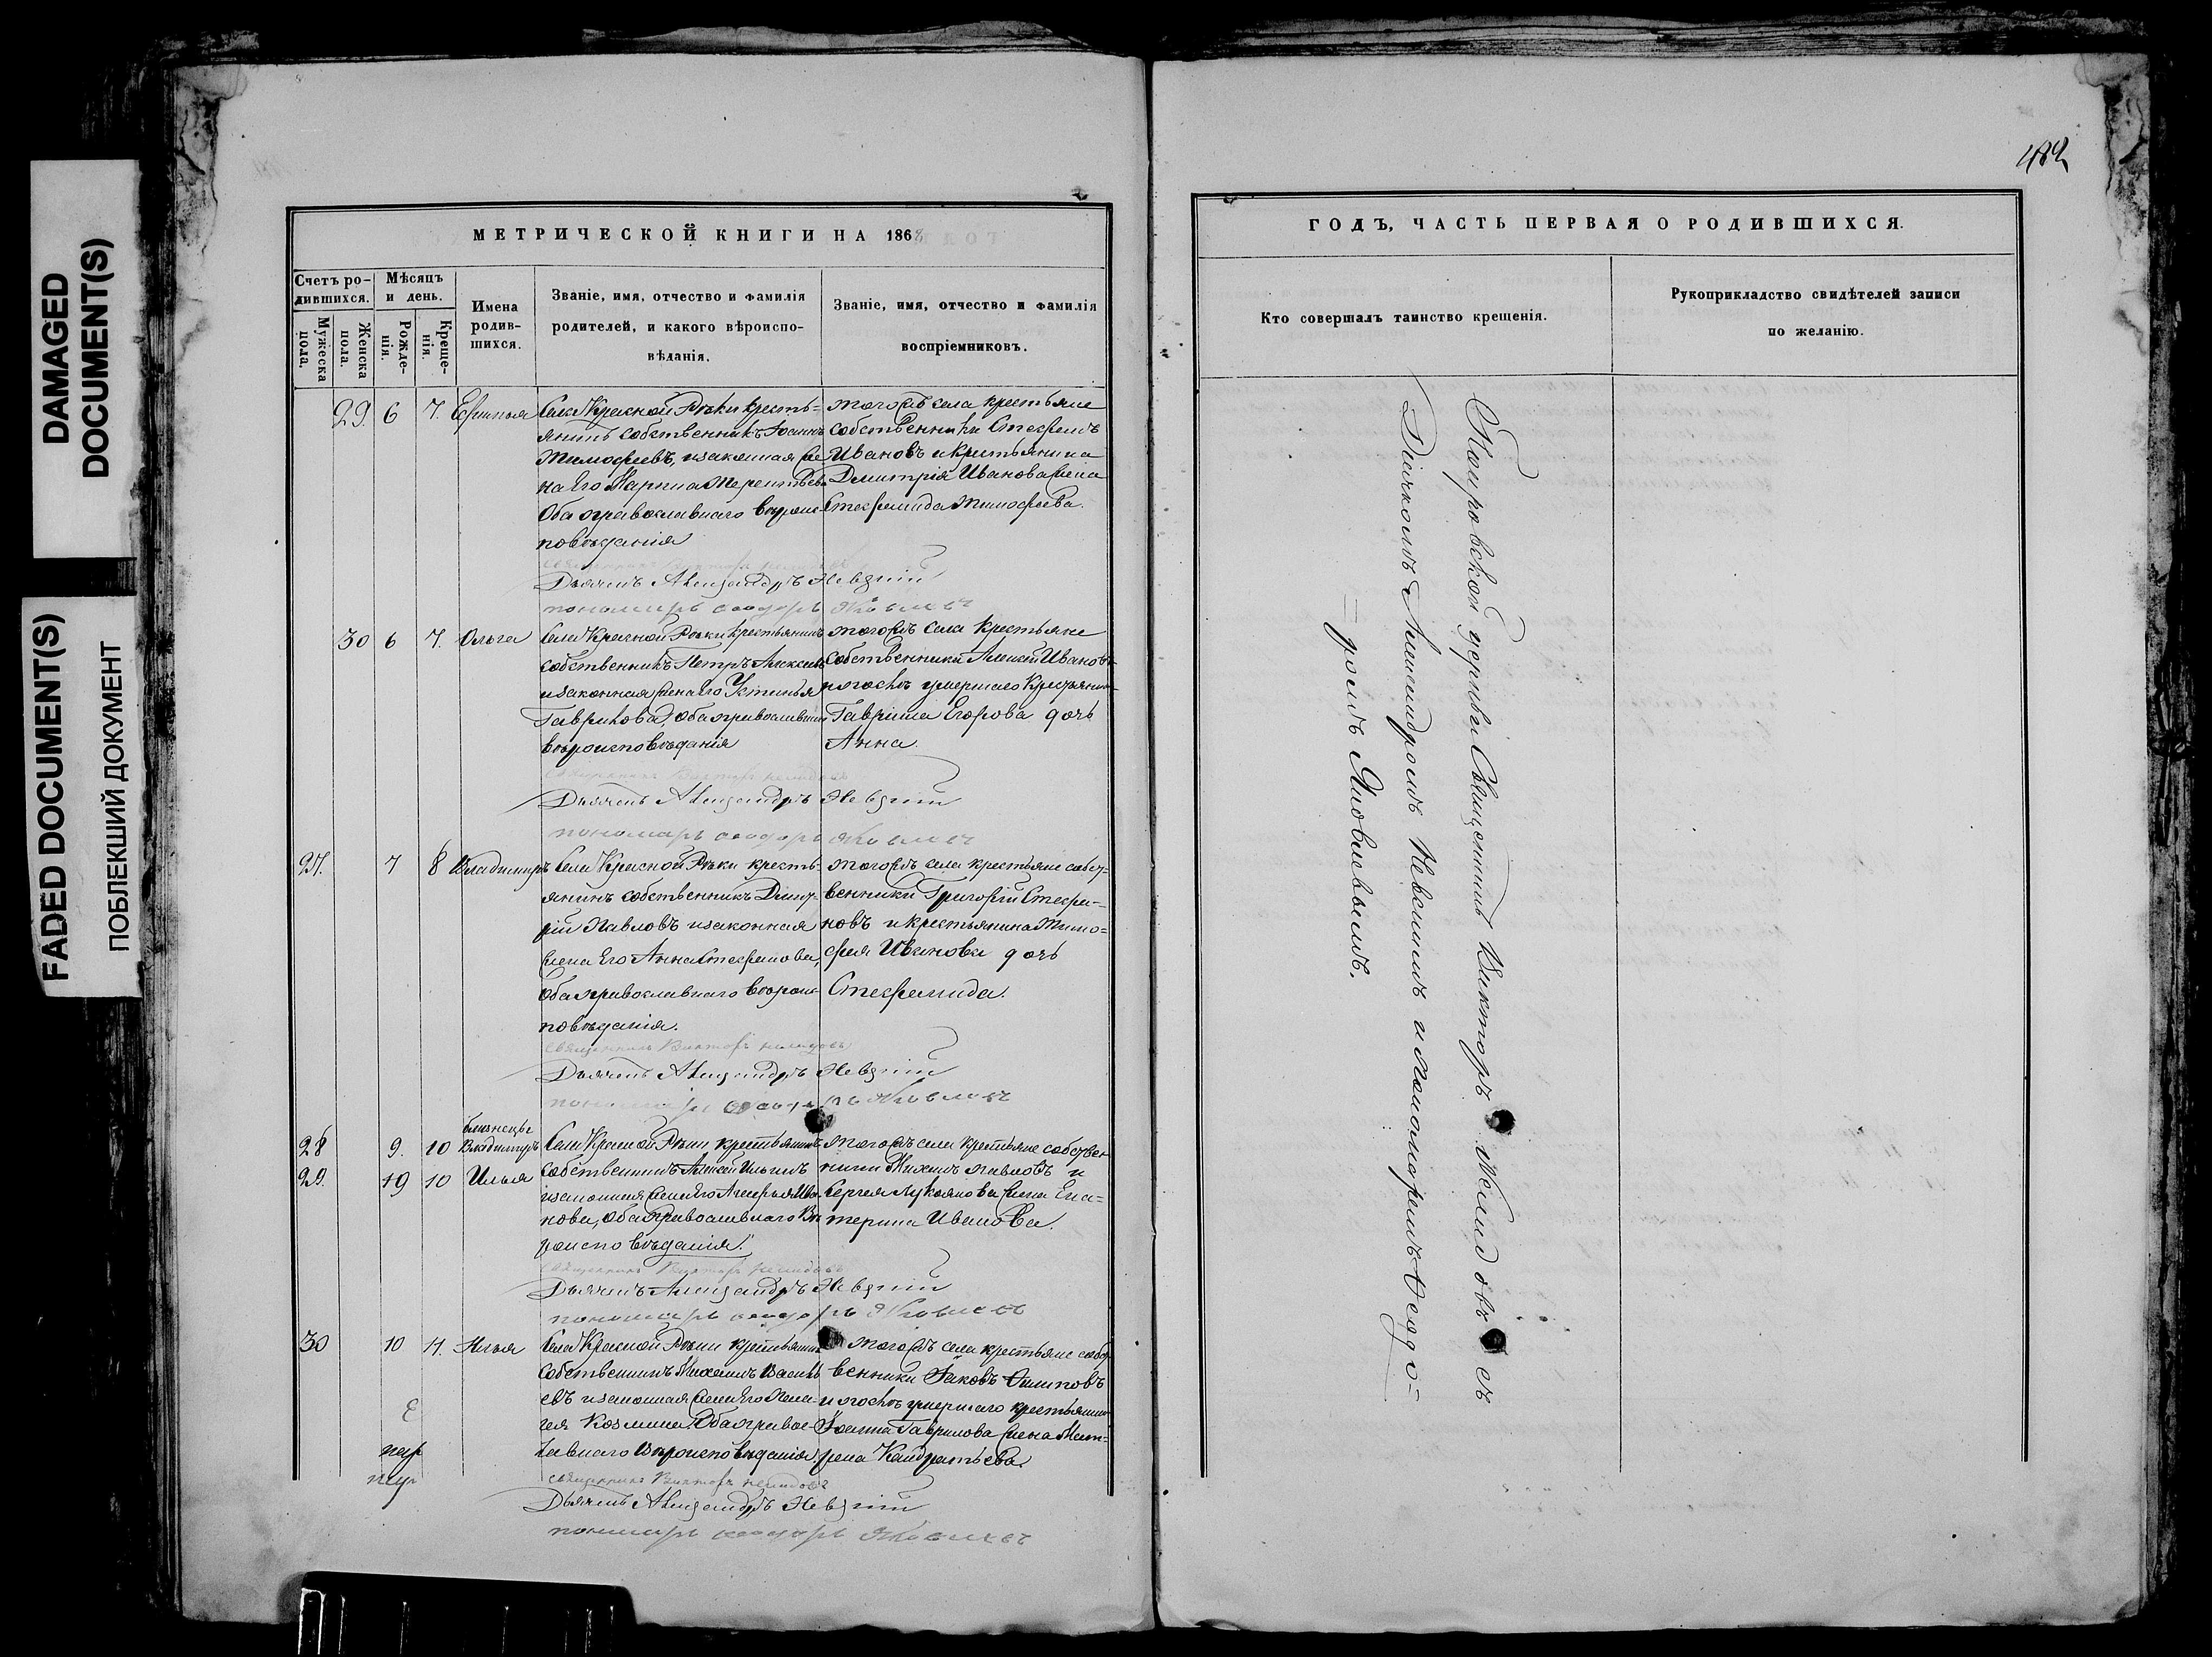 DAMAGED
DOCUMENT(S)
FADED DOCUMENT(S)
ПОБЛЕКШИЙ ДОКУМЕНТ
МЕТРИЧЕСКОЙ КНИГИ НА 1868
Счетъ ро-
дившихся.
Мужеска
пола.
Женска
пола.
Мѣсяцъ
и день.
Рожде-
нія.
Креще-
нія.
Имена
родив-
шихся.
Званіе, имя, отчество и фамилія
родителей, и какого вѣроиспо-
вѣданія.
Званіе, имя, отчество и фамилія
воспріемниковъ.
29. 6 7.
Села Красной Рѣки кресть=
янинъ собственникъ Іоаннъ
Тимофеевъ, и законная же
на Его Марина Терентьева
Оба православнаго вѣроис
повѣданія
того жъ села крестьяне
собственники Стефанъ
Ивановъ и крестьянина
Димитрія Иванова жена
Стефанида Тимофеева.
Дьячекъ Александръ Невскій
пономарь Ѳеодоръ Яковлевъ
30 6 7. Ольга
Села Красной Рѣки крестьянинъ
собственникъ Петръ Алексѣевъ
и законная жена Его Устинья
Гаврилова, оба православнаго
вѣроисповѣданія
того жъ села крестьяне
собственники Алексѣй Ивановъ
умершаго крестьянина
Гавріила Егорова дочь
Анна.
Священникъ Викторъ Нелидовъ
Дьячекъ Александръ Невскій
пономарь Ѳеодоръ Яковлевъ
27. 7 8 Владимиръ
Села Красной Рѣки кресть-
янинъ собственникъ Димит-
рій Павловъ и законная
жена Его Анна Стефанова,
Оба православнаго вѣроис-
повѣданія.
того жъ села крестьяне собст-
венники Григорій Стефа-
новъ и крестьянина Тимо=
фея Иванова дочь
Стефанида.
Священникъ Викторъ Нелидовъ
Дьячекъ Александръ Невскій
пономарь Ѳеодоръ Яковлевъ
близнецы
28 9. 10 Владимиръ
29. 9 10 Илья
Села Красной Рѣки крестьянинъ
собственникъ Алексѣй Ильинъ
и законная жена Его Ива-
нова, оба православнаго вѣ
роисповѣданія.
того жъ села крестьяне собствен
ники Михаилъ Павловъ и
Сергея Лукоянова жена Ека=
терина Иванова.
Священникъ Викторъ Нелидовъ
Дьячекъ Александръ Невскій
пономарь Ѳеодоръ Яковлевъ
30 10 11. Илья
Села Красной Рѣки крестьянинъ
собственникъ Михаилъ Василь
евъ и законная жена Его Пела-
гея Козмина. Оба правос-
лавнаго вѣроисповѣданія.
того жъ села крестьяне собст
венники Іаковъ Филиповъ
умершаго крестьянина
Іоанна Гаврилова жена Мат-
рена Кандратьева.
Священникъ Викторъ Нелидовъ
Дьячекъ Александръ Невскій
пономарь Ѳеодоръ Яковлевъ
482
ГОДЪ, ЧАСТЬ ПЕРВАЯ О РОДИВШИХСЯ.
Кто совершалъ таинство крещенія.
Рукоприкладство свидѣтелей записи
по желанію.
Покровской церкви Священникъ Викторъ Нелидовъ съ
Дьячкомъ Александромъ Невскимъ и пономаремъ Ѳеодо=
=ромъ Яковлевымъ.